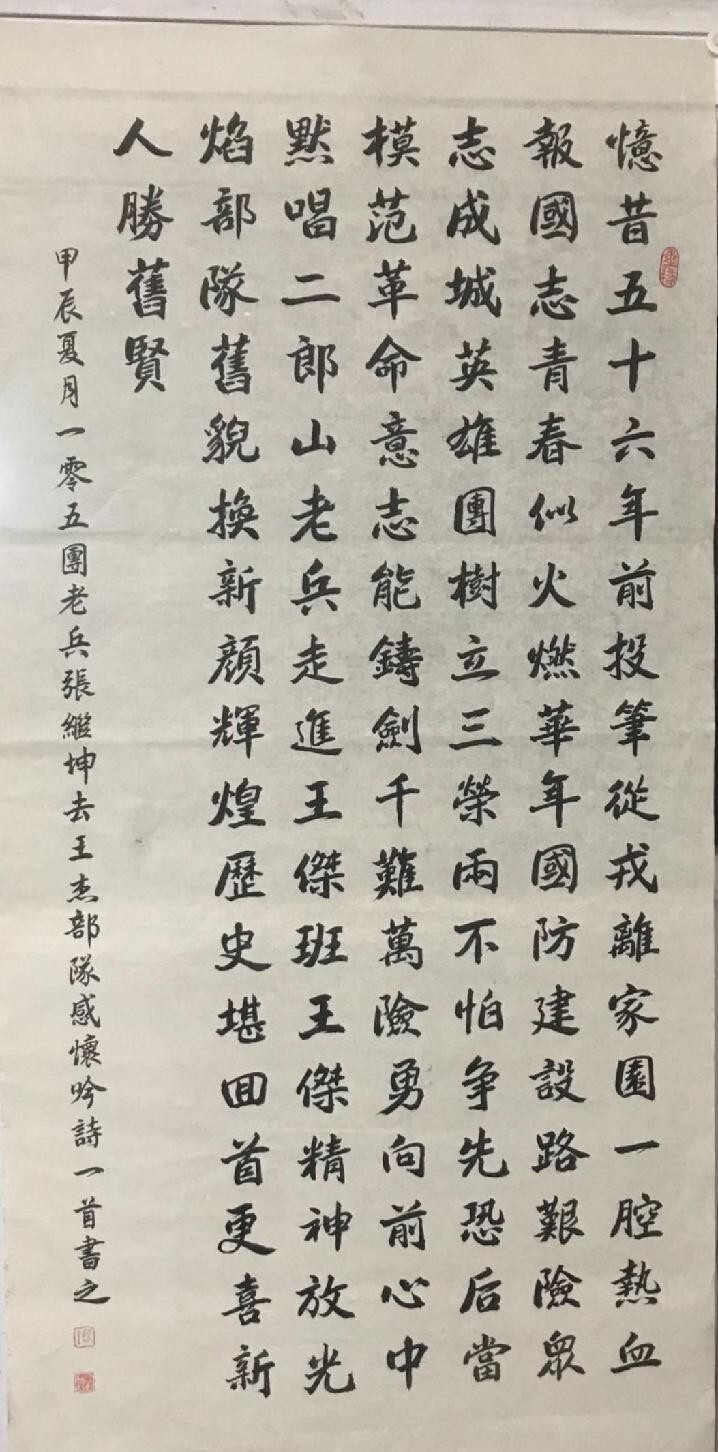 憶昔五十六年前投筆從戎離家園一腔熱血
報國志青春似火燃華年國防建設路艱險眾
志成城英雄團樹立三榮兩不怕争先恐后當
模范革命意志能鑄劍千難萬險勇向前心中
默唱二郎山老兵走進王傑班王傑精神放光
焰部隊舊貌換新顏輝煌歷史堪回首更喜新
人勝舊賢
甲辰夏月一零五團老兵張繼坤去王杰部隊感懷吟詩一首書之